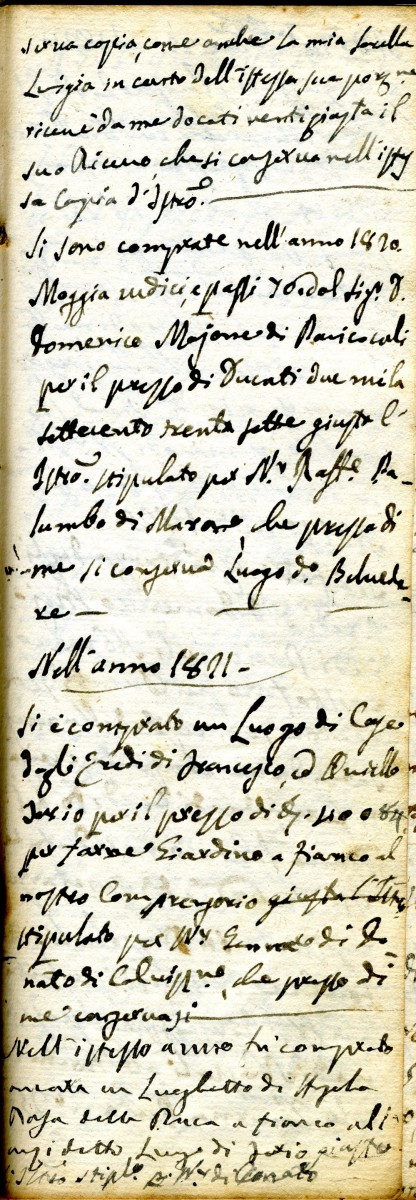 serva copia, come anche la mia sorella
Luigia in conto dell'istessa sua porz.ne
ricevè da me docati venti giusta il
suo Ricevo, che si conserva nell'istes
sa Copia d'Istro.
Si sono comprate nell'anno 1820.
Moggia undici, e passi 76. dal Sig.r D.
Domenico Majone di Panicocoli
per il prezzo di Ducati due mila
settecento trenta sette giusta l'
Istro. stipulato per N.r Raff.e Pa-
lumbo di Marano, che presso di
me si conserva Luogo d.o Belvede
re
Nell'anno 1821-
Si è comprato un Luogo di Case
dagli Eredi di Francesco, ed Aniello
Iorio per il prezzo di
per farne Giardino a fianco al
nostro Comprensorio giusta l'Istro
stipulato per N.r Gennaro di Do
nato di Calvizz.no, che presso di
me conservasi
Nell'istesso anno fu comprato
ancora un Lueghetto di
Rosa della a fianco all'
anzidetto Luogo di Iorio giusta
l'Istro stip.to p N.r di Donato